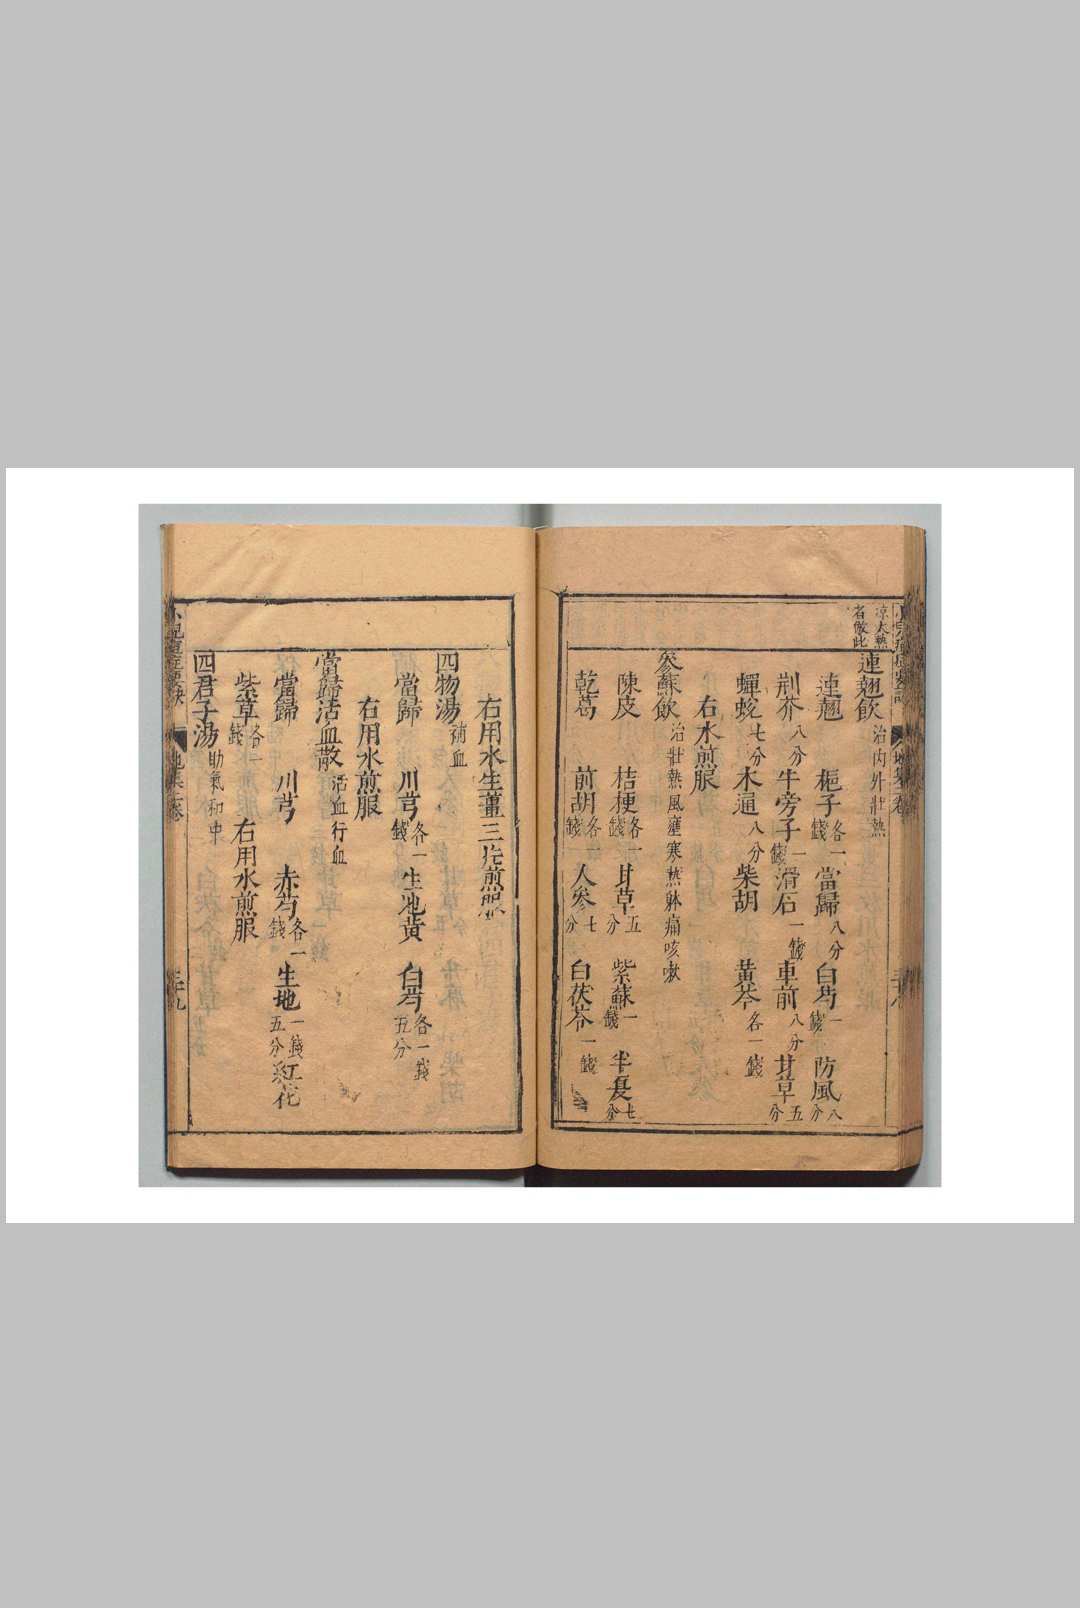 涼大熱
者倣此
連翹飲 治內外壯熱
連翹 梔子各一錢 當歸八分 白芍一錢 防風八分
荊芥八分 牛旁子一錢 滑石一錢 車前八分 甘草五分
蟬蛻七分 木通八分 柴胡 黃芩各一錢
右水煎服
參蘇飲 治壯熱風壅寒熱躰痛咳嗽
陳皮 桔梗各一錢 甘草五分 紫蘇一錢 半夏七分
乾葛 前胡各一錢 人參七分 白茯苓一錢
地集 卷
三十八
右用水生薑三片煎服
四物湯 補血
當歸 川芎各一錢 生地黃 白芍各一錢五分
右用水煎服
當歸活血散 活血行血
當歸 川芎 赤芍各一錢 生地一錢五分 紅花
紫草各一錢 右用水煎服
四君子湯 助氣和中
小兒 地集 卷
三十九